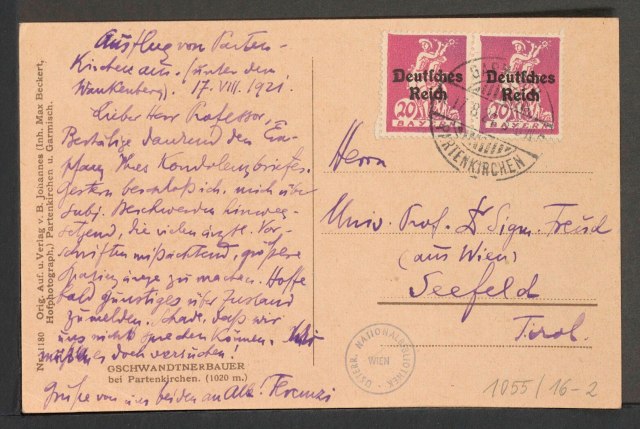 Ausflug von Parten-
kirchen aus. (unter dem
Wankenberg). 17. VIII. 1921.
Lieber Herr Professor,
Bestätige dankend den Em-
pfang Ihres Kondolenzbriefes.
Gestern beschloß ich, mich über
subj. Beschwerden hinweg-
setzend, die vielen ärztl. Vor-
schriften mißachtend, größere
Spaziergänge zu machen. Hoffe
bald günstiges über Zustand
zu melden. Schade, daß wir
uns nicht sprechen können. Wir
müssen es doch versuchen!
GSCHWANDTNERBAUER
bei Partenkirchen. (1020 m.)
Grüße von uns beiden an Alle! Ferenczi
Nr. 1180 Orig. Auf. u. Verlag v. B. Johannes (Inh. Max Beckert,
Hofphotograph,) Partenkirchen u. Garmisch.
Deutsches
Reich
20 20
BAYERN
Deutsches
Reich
20 20
BAYERN
PARTENKIRCHEN
Herrn
Univ. Prof. Dr Sigm. Freud
(aus Wien)
Seefeld
Tirol.
ÖSTERR. NATIONALBIBLIOTHEK
WIEN
1055/16-2